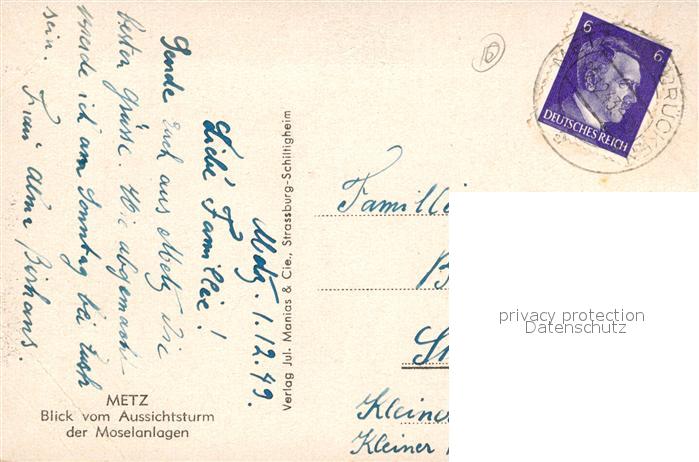 Metz. 1.12.49.
Liebe Familie!
Sende Euch aus Metz die
besten Grüsse. Wie abgemacht
werde ich am Sonntag bei Euch
sein.
Frau Alma
METZ
Blick vom Aussichtsturm
der Moselanlagen
Verlag Jul. Manias & Cie., Strassburg-Schiltigheim
6 6
DEUTSCHES REICH
Famili
B
St
Kleine
Kleiner
privacy protection
Datenschutz